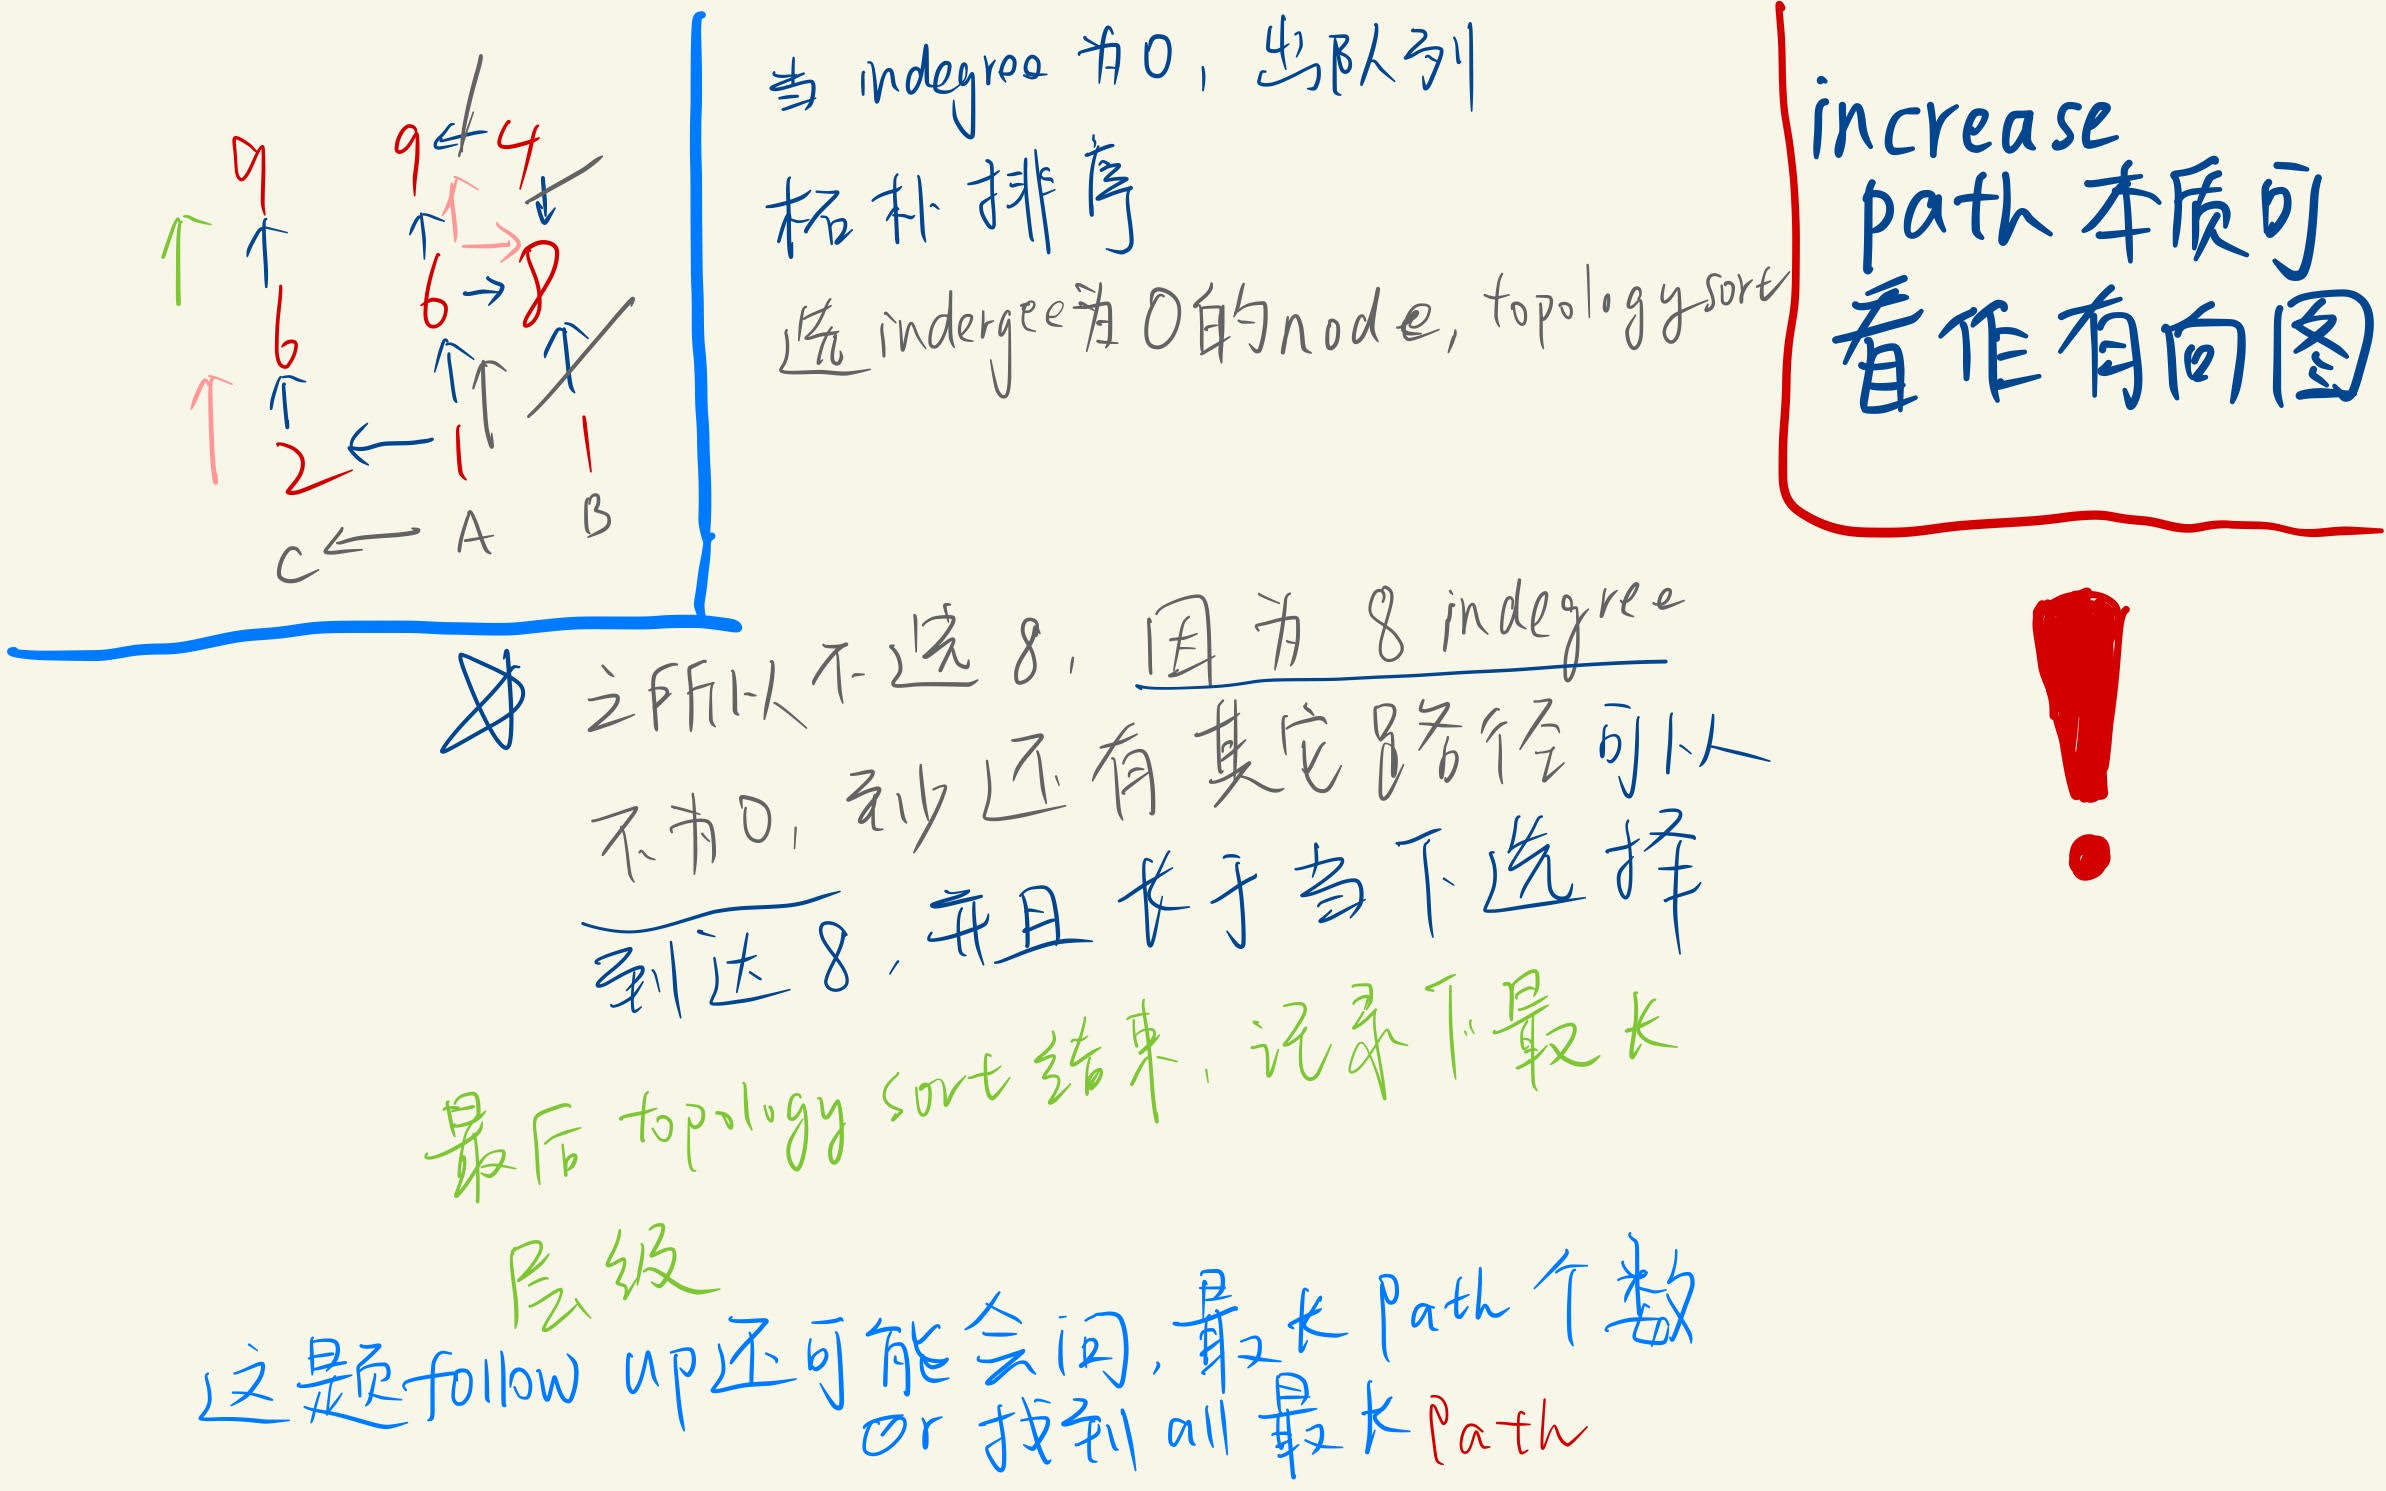 9 9 4
6 6 8
2 1 1
C A B
当 indegree 为 0, 出队列
拓扑排序
选 indergee 为 0 的 node, topology sort
increase
path 本质可
看作有向图
之所以不选 8, 因为 8 indegree
不为 0, 至少还有其它路径可以
到达 8, 并且长于当下选择
最后 topology sort 结果, 记录下最长
层级
这题 follow up 还可能会问, 最长 path 个数
or 找到 all 最长 path